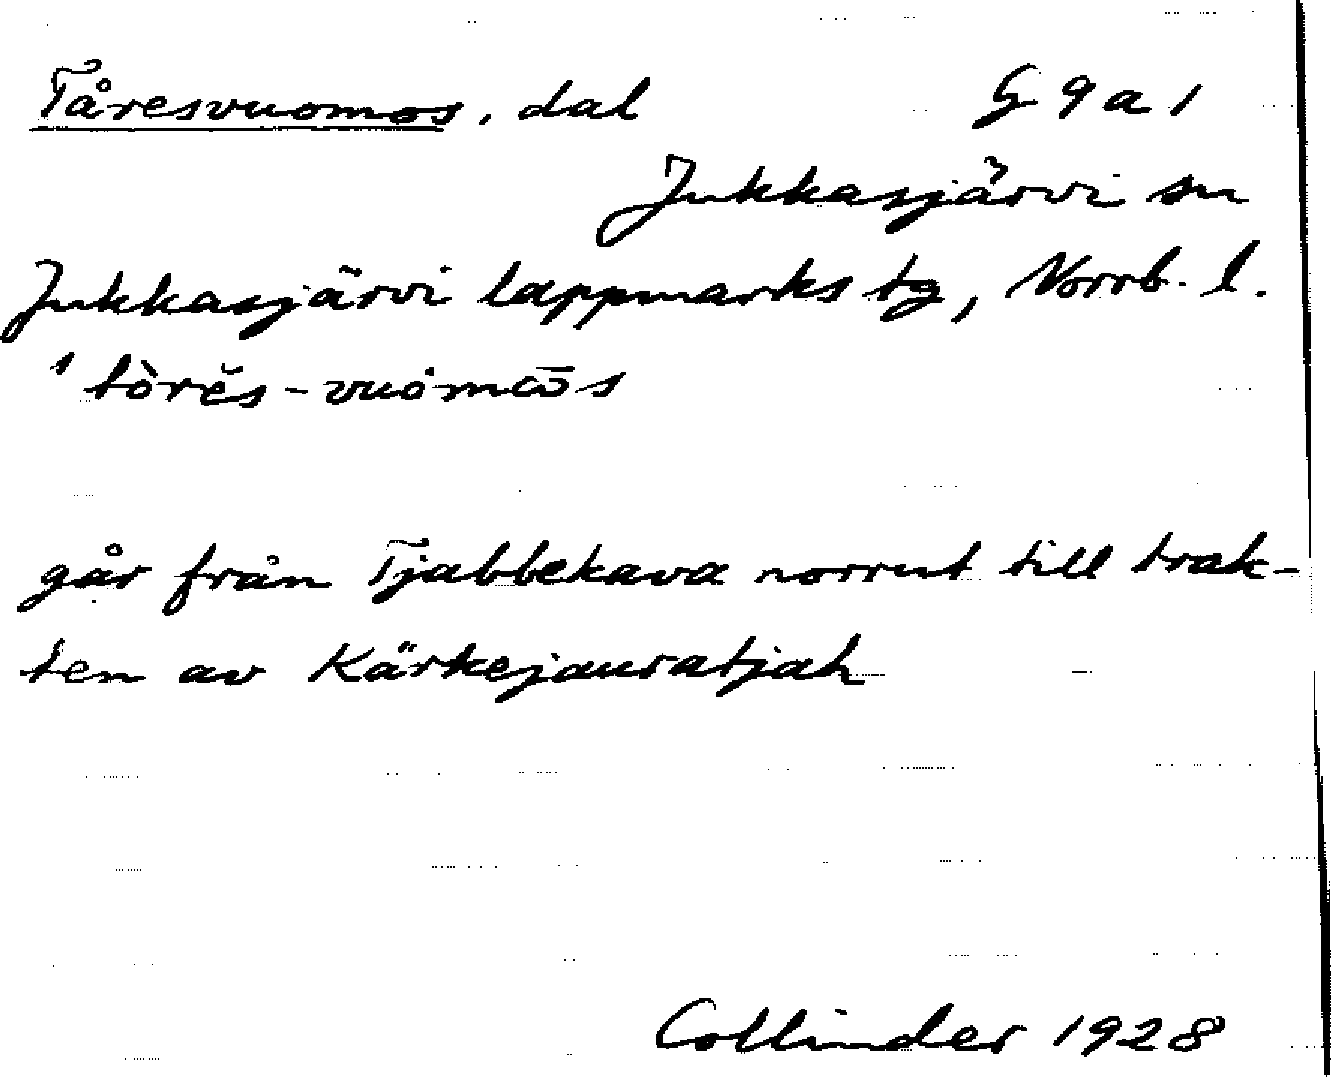 Tåresvuomos, dal G 9 a 1
Jukkasjärvi sn
Jukkasjärvi lappmarks tg, Norrb. l.
ˈtòrĕs-vuomās
går från Tjabbekava norrut till trak-
ten av Kärkejauratjah
Collinder 1928